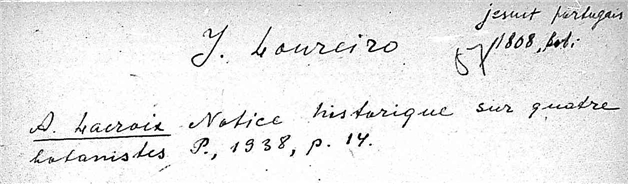 jesuit portugais
J. Loureiro
1808, bot.
A. Lacroix Notice historique sur quatre
botanistes P., 1938, p. 14.